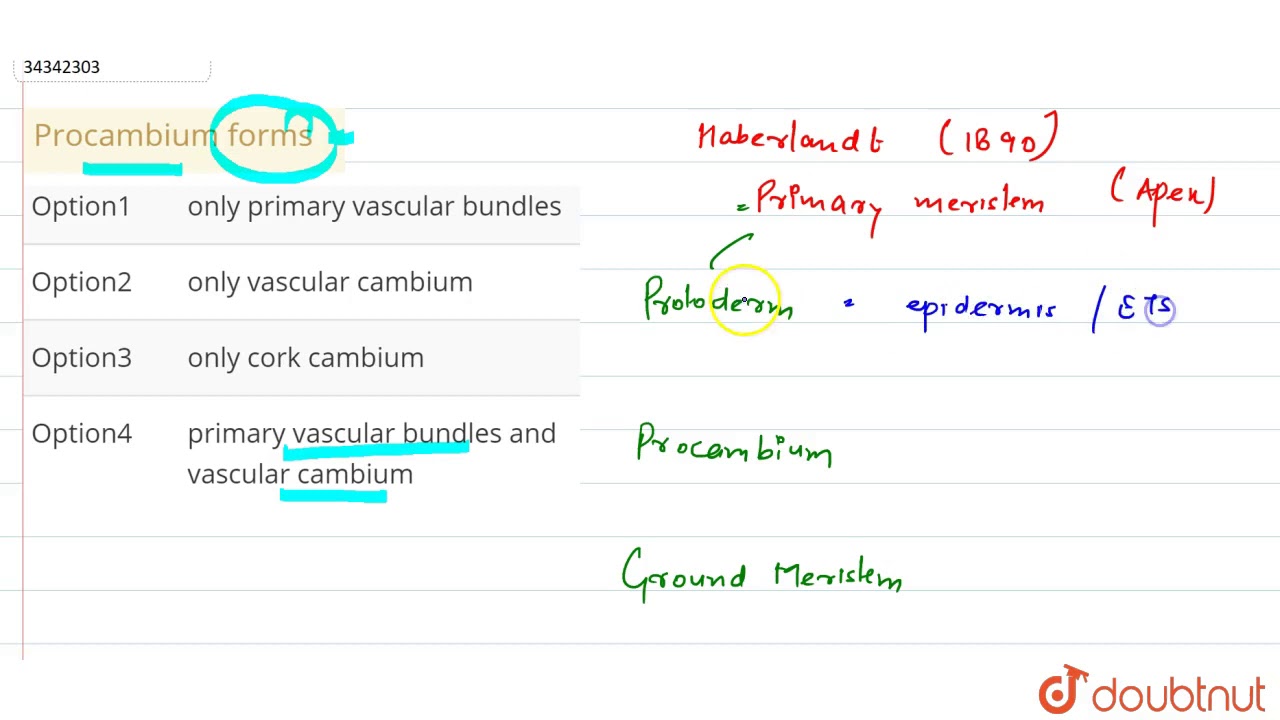 34342303
Procambium forms
Option1 only primary vascular bundles
Option2 only vascular cambium
Option3 only cork cambium
Option4 primary vascular bundles and
vascular cambium
Haberlandt (1890)
= Primary meristem (Apex)
Protoderm = epidermis / ETS
Procambium
Ground Meristem
doubtnut